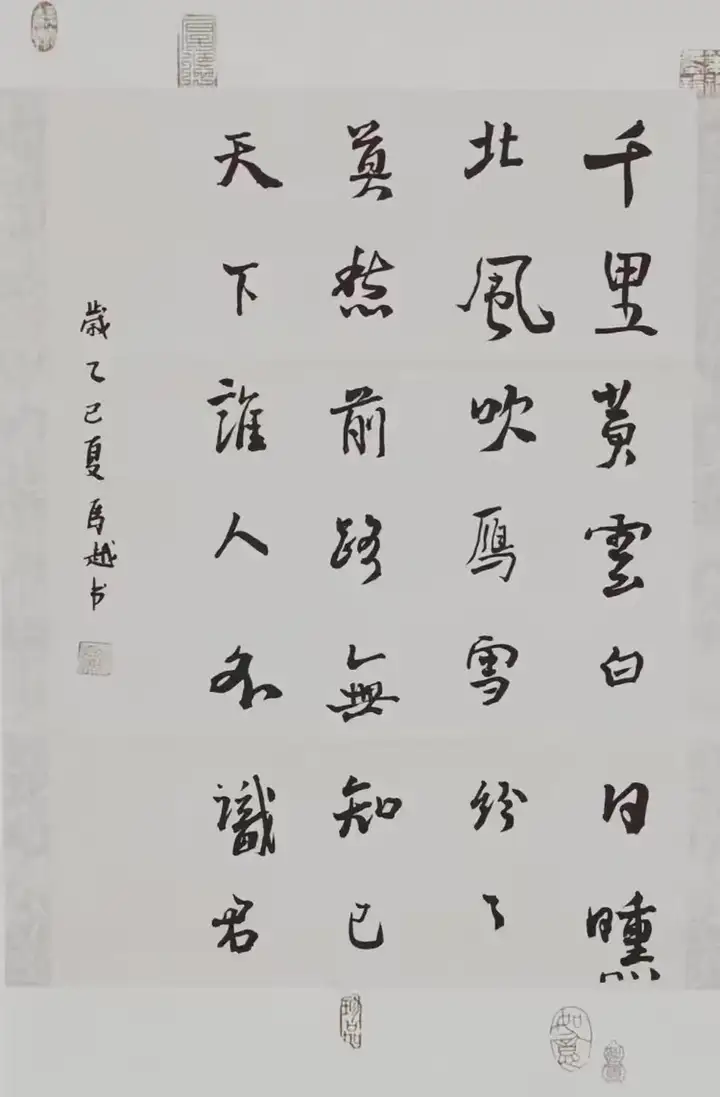 千里黄雲白日曛
北風吹雁雪紛〻
莫愁前路無知己
天下誰人不識君
歲乙巳夏馬越书
如意